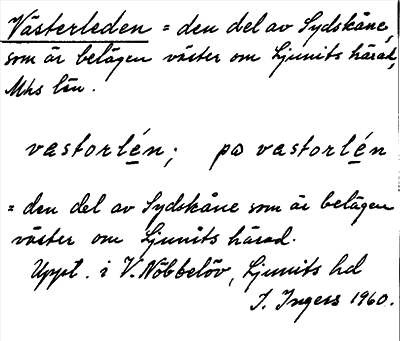 Västerleden = den del av Sydskåne,
som är belägen väster om Ljunits härad,
Mhs län.
vastorlén; po vastorlén
= den del av Sydskåne som är belägen
väster om Ljunits härad.
Uppt. i V. Nöbbelöv, Ljunits hd
I. Ingers 1960.